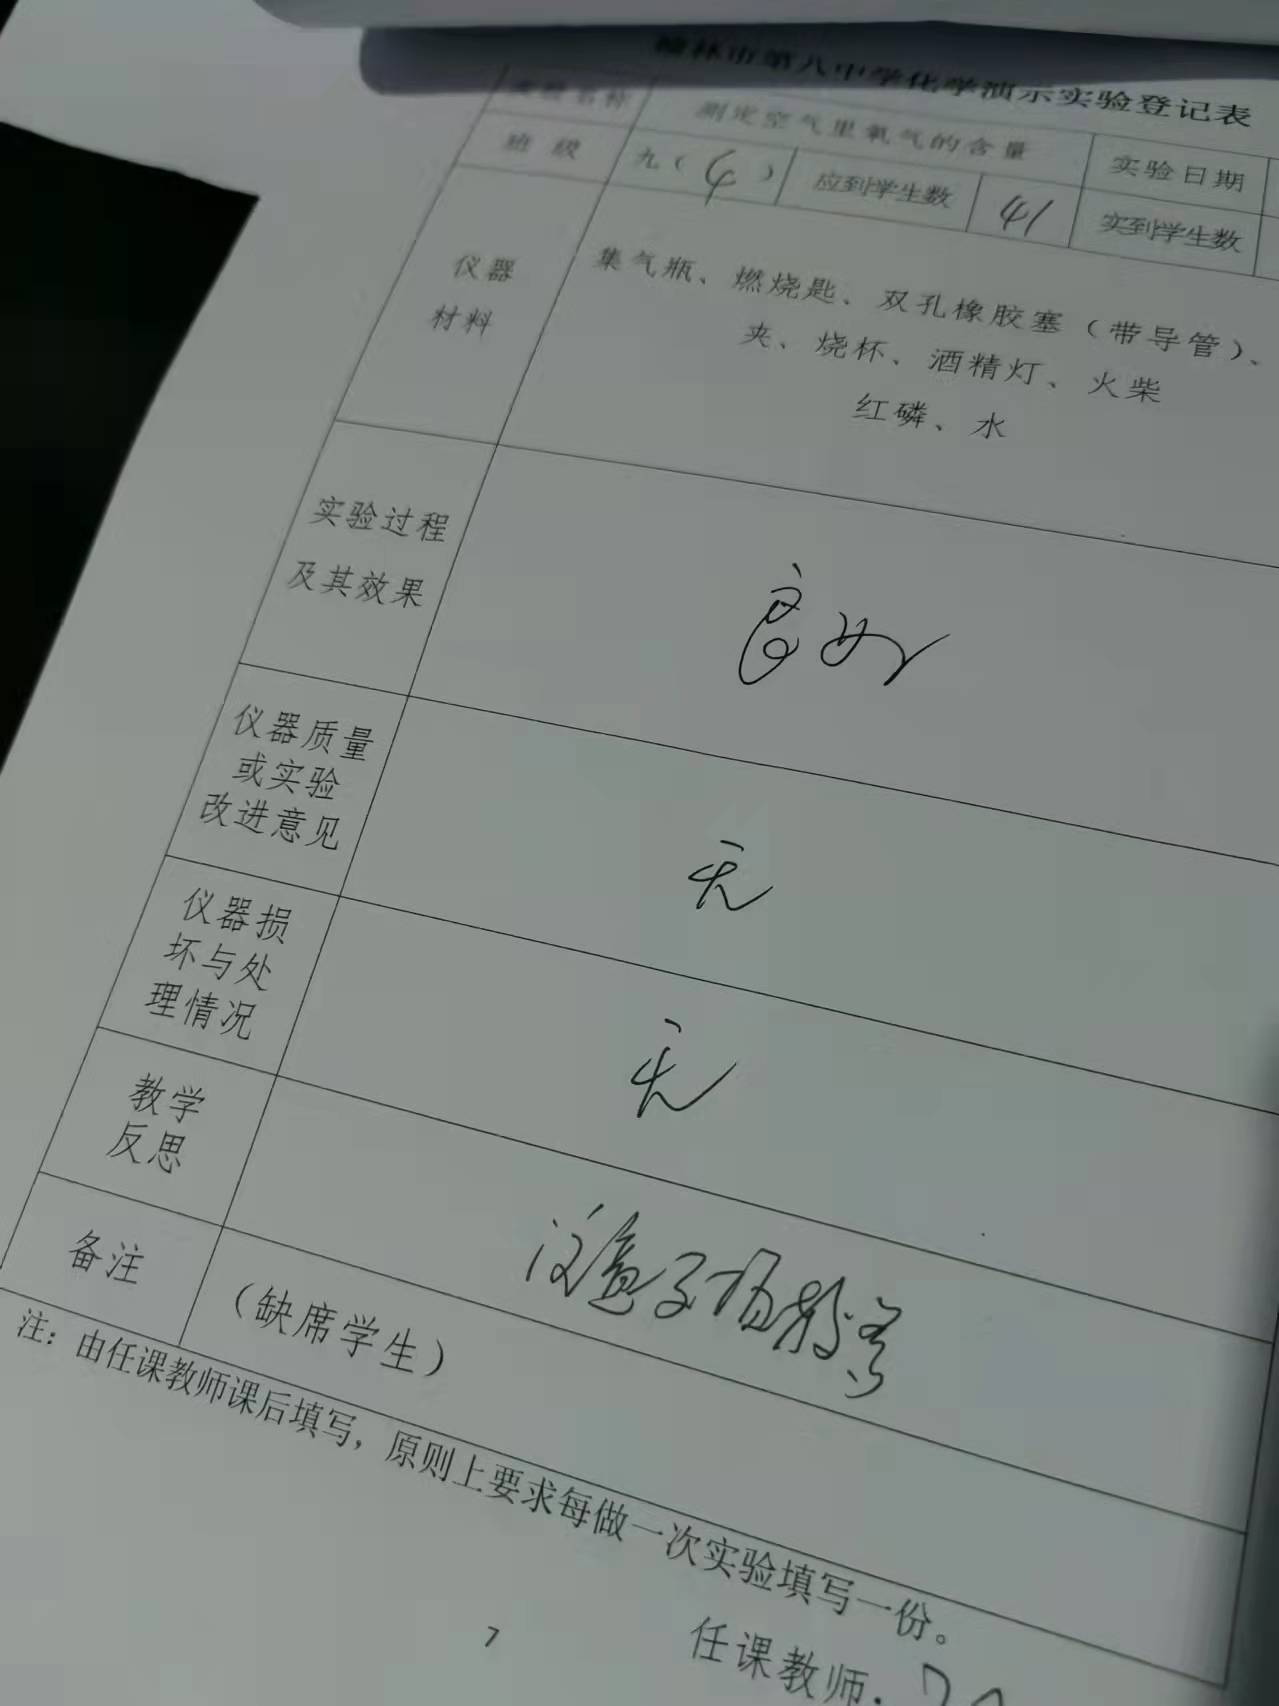 榆林市第八中学化学演示实验登记表
实验名称 测定空气里氧气的含量 实验日期
班 级 九(4) 应到学生数 41 实到学生数
仪器
材料
集气瓶、燃烧匙、双孔橡胶塞(带导管)、
夹、烧杯、酒精灯、火柴
红磷、水
实验过程
及其效果
良好
仪器质量
或实验
改进意见
无
仪器损
坏与处
理情况
无
教学
反思
注意
备注
(缺席学生)
注:由任课教师课后填写,原则上要求每做一次实验填写一份。
7
任课教师: